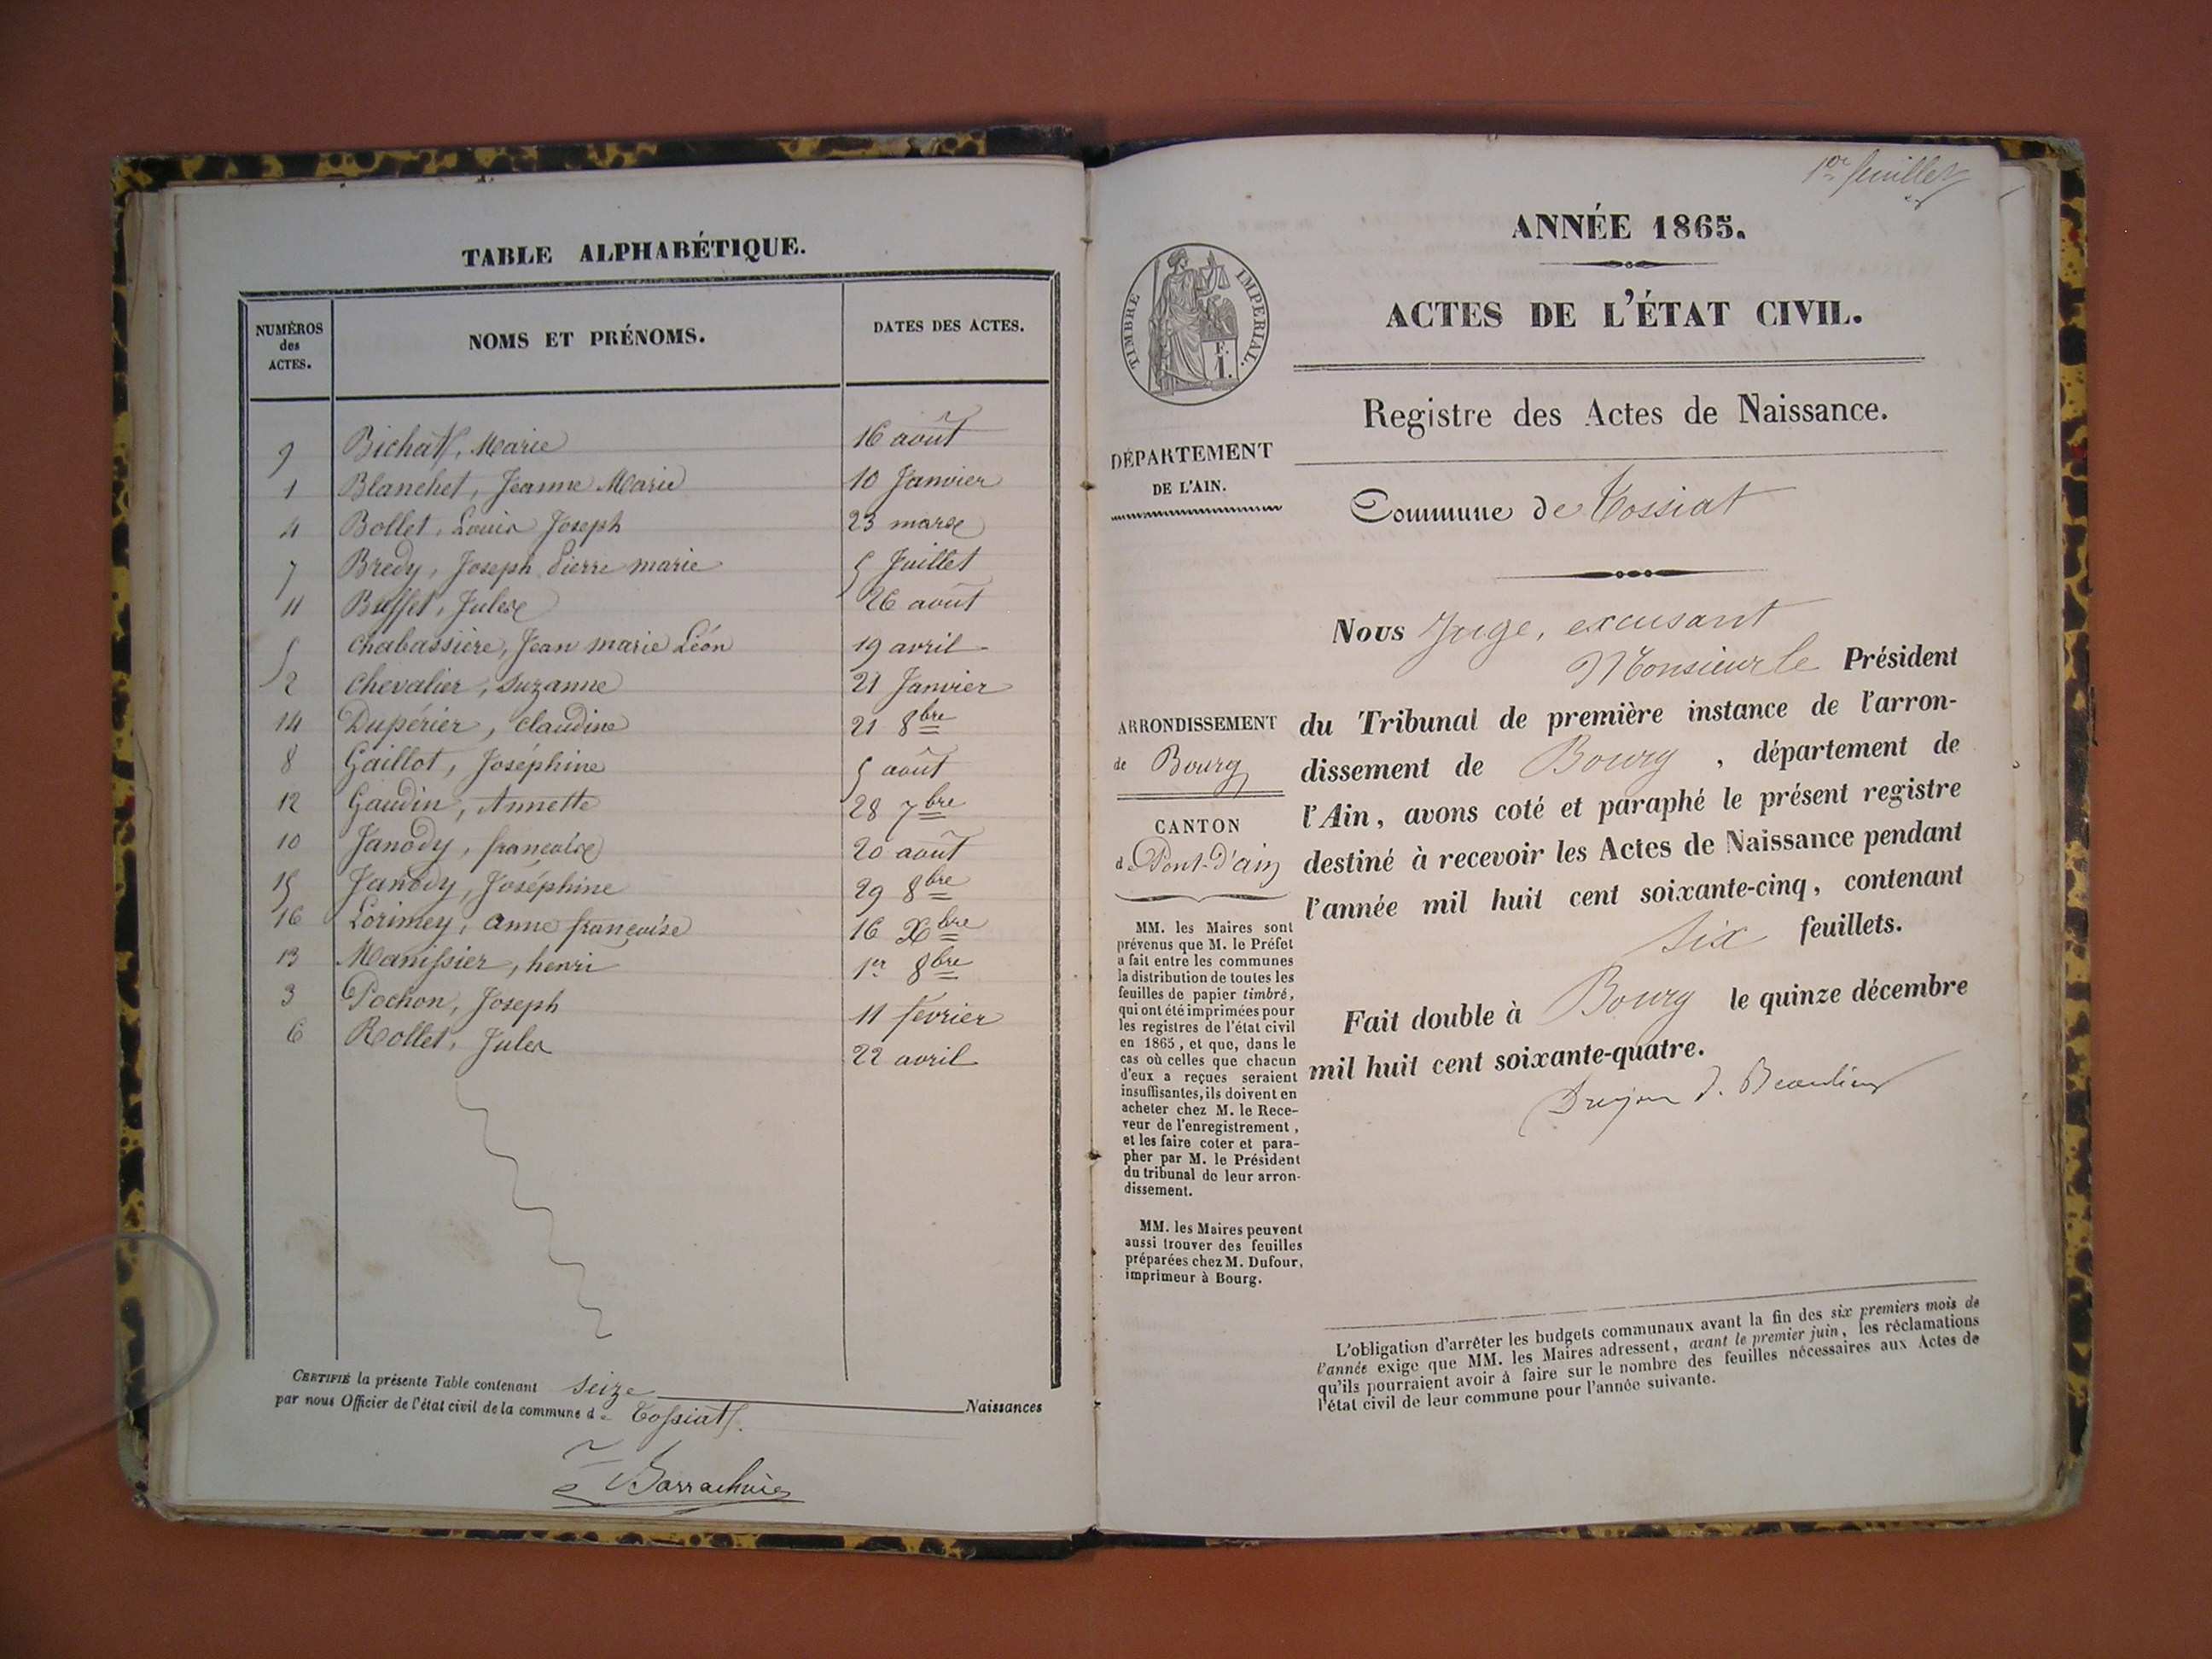 TABLE ALPHABÉTIQUE.
NUMÉROS des ACTES.
NOMS ET PRÉNOMS.
DATES DES ACTES.
9 Bichat, Marie 16 août
1 Blanchet, Jeanne Marie 10 Janvier
4 Bollet, Louis Joseph 23 mars
7 Bredy, Joseph Pierre marie 5 Juillet
11 Buffet, Jules 26 août
5 Chabassière, Jean marie Léon 19 avril
2 Chevalier, Suzanne 21 Janvier
14 Dupérier, Claudine 21 8bre
8 Gaillot, Joséphine 5 août
12 Gaudin, Annette 28 7bre
10 Janody, françoise 20 août
15 Janody, Joséphine 29 8bre
16 Lorimey, Anne françoise 16 Xbre
13 Manissier, henri 1er 8bre
3 Pochon, Joseph 11 février
6 Rollet, Jules 22 avril
CERTIFIÉ la présente Table contenant seize Naissances
par nous Officier de l'état civil de la commune de Tossiat.
1er feuillet
ANNÉE 1865.
ACTES DE L'ÉTAT CIVIL.
Registre des Actes de Naissance.
Commune de Tossiat
TIMBRE IMPERIAL.
F.
1.
DÉPARTEMENT
DE L'AIN.
ARRONDISSEMENT
de Bourg
CANTON
de Pont-d'ain
MM. les Maires sont
prévenus que M. le Préfet
a fait entre les communes
la distribution de toutes les
feuilles de papier timbré,
qui ont été imprimées pour
les registres de l'état civil
en 1865, et que, dans le
cas où celles que chacun
d'eux a reçues seraient
insuffisantes, ils doivent en
acheter chez M. le Rece-
veur de l'enregistrement,
et les faire coter et para-
pher par M. le Président
du tribunal de leur arron-
dissement.
MM. les Maires peuvent
aussi trouver des feuilles
préparées chez M. Dufour,
imprimeur à Bourg.
Nous Juge, excusant
Monsieur le Président
du Tribunal de première instance de l'arron-
dissement de Bourg, département de
l'Ain, avons coté et paraphé le présent registre
destiné à recevoir les Actes de Naissance pendant
l'année mil huit cent soixante-cinq, contenant
six feuillets.
Fait double à Bourg le quinze décembre
mil huit cent soixante-quatre.
L'obligation d'arrêter les budgets communaux avant la fin des six premiers mois de
l'année exige que MM. les Maires adressent, avant le premier juin, les réclamations
qu'ils pourraient avoir à faire sur le nombre des feuilles nécessaires aux Actes de
l'état civil de leur commune pour l'année suivante.